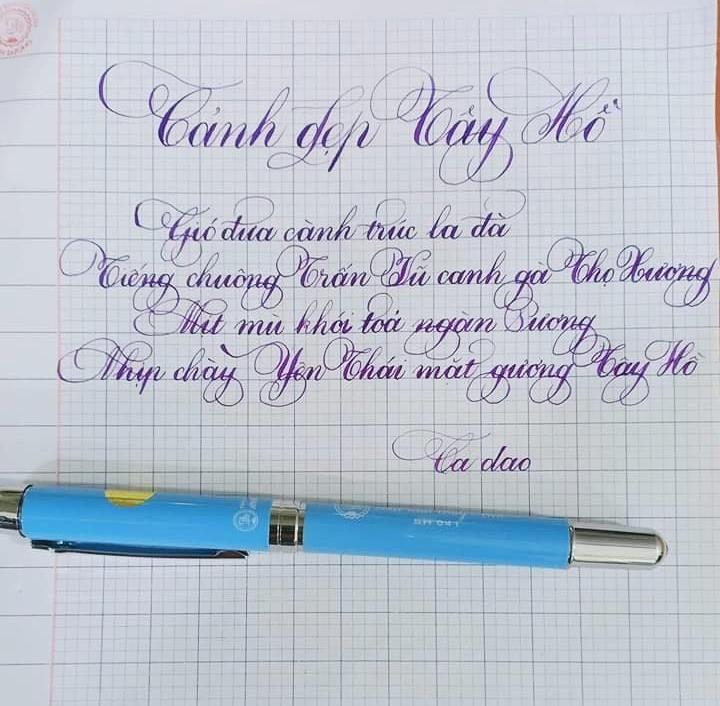 Cảnh đẹp Tây Hồ
Gió đưa cành trúc la đà
Tiếng chuông Trấn Vũ canh gà Thọ Xương
Mịt mù khói toả ngàn sương
Nhịp chày Yên Thái mặt gương Tây Hồ
Ca dao
SH 041